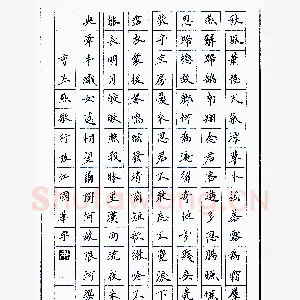 秋風蕭瑟天氣涼草木搖落露為霜群
燕辭歸鵠南翔念君客遊多思腸慊慊
思歸戀故鄉君何淹留寄他方賤妾煢
煢守空房憂來思君不敢忘不覺淚下
霑衣裳援琴鳴絃發清商短歌微吟不
能長明月皎皎照我床星漢西流夜未
央牽牛織女遙相望爾獨何辜限河梁
燕歌行 江國華書